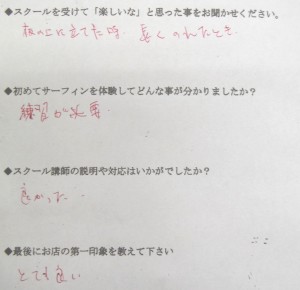 ◆スクールを受けて「楽しいな」と思った事をお聞かせください。
板の上に立てた時、長くのれたとき
◆初めてサーフィンを体験してどんな事が分かりましたか？
練習が必要
◆スクール講師の説明や対応はいかがでしたか？
良かった
◆最後にお店の第一印象を教えて下さい
とても良い